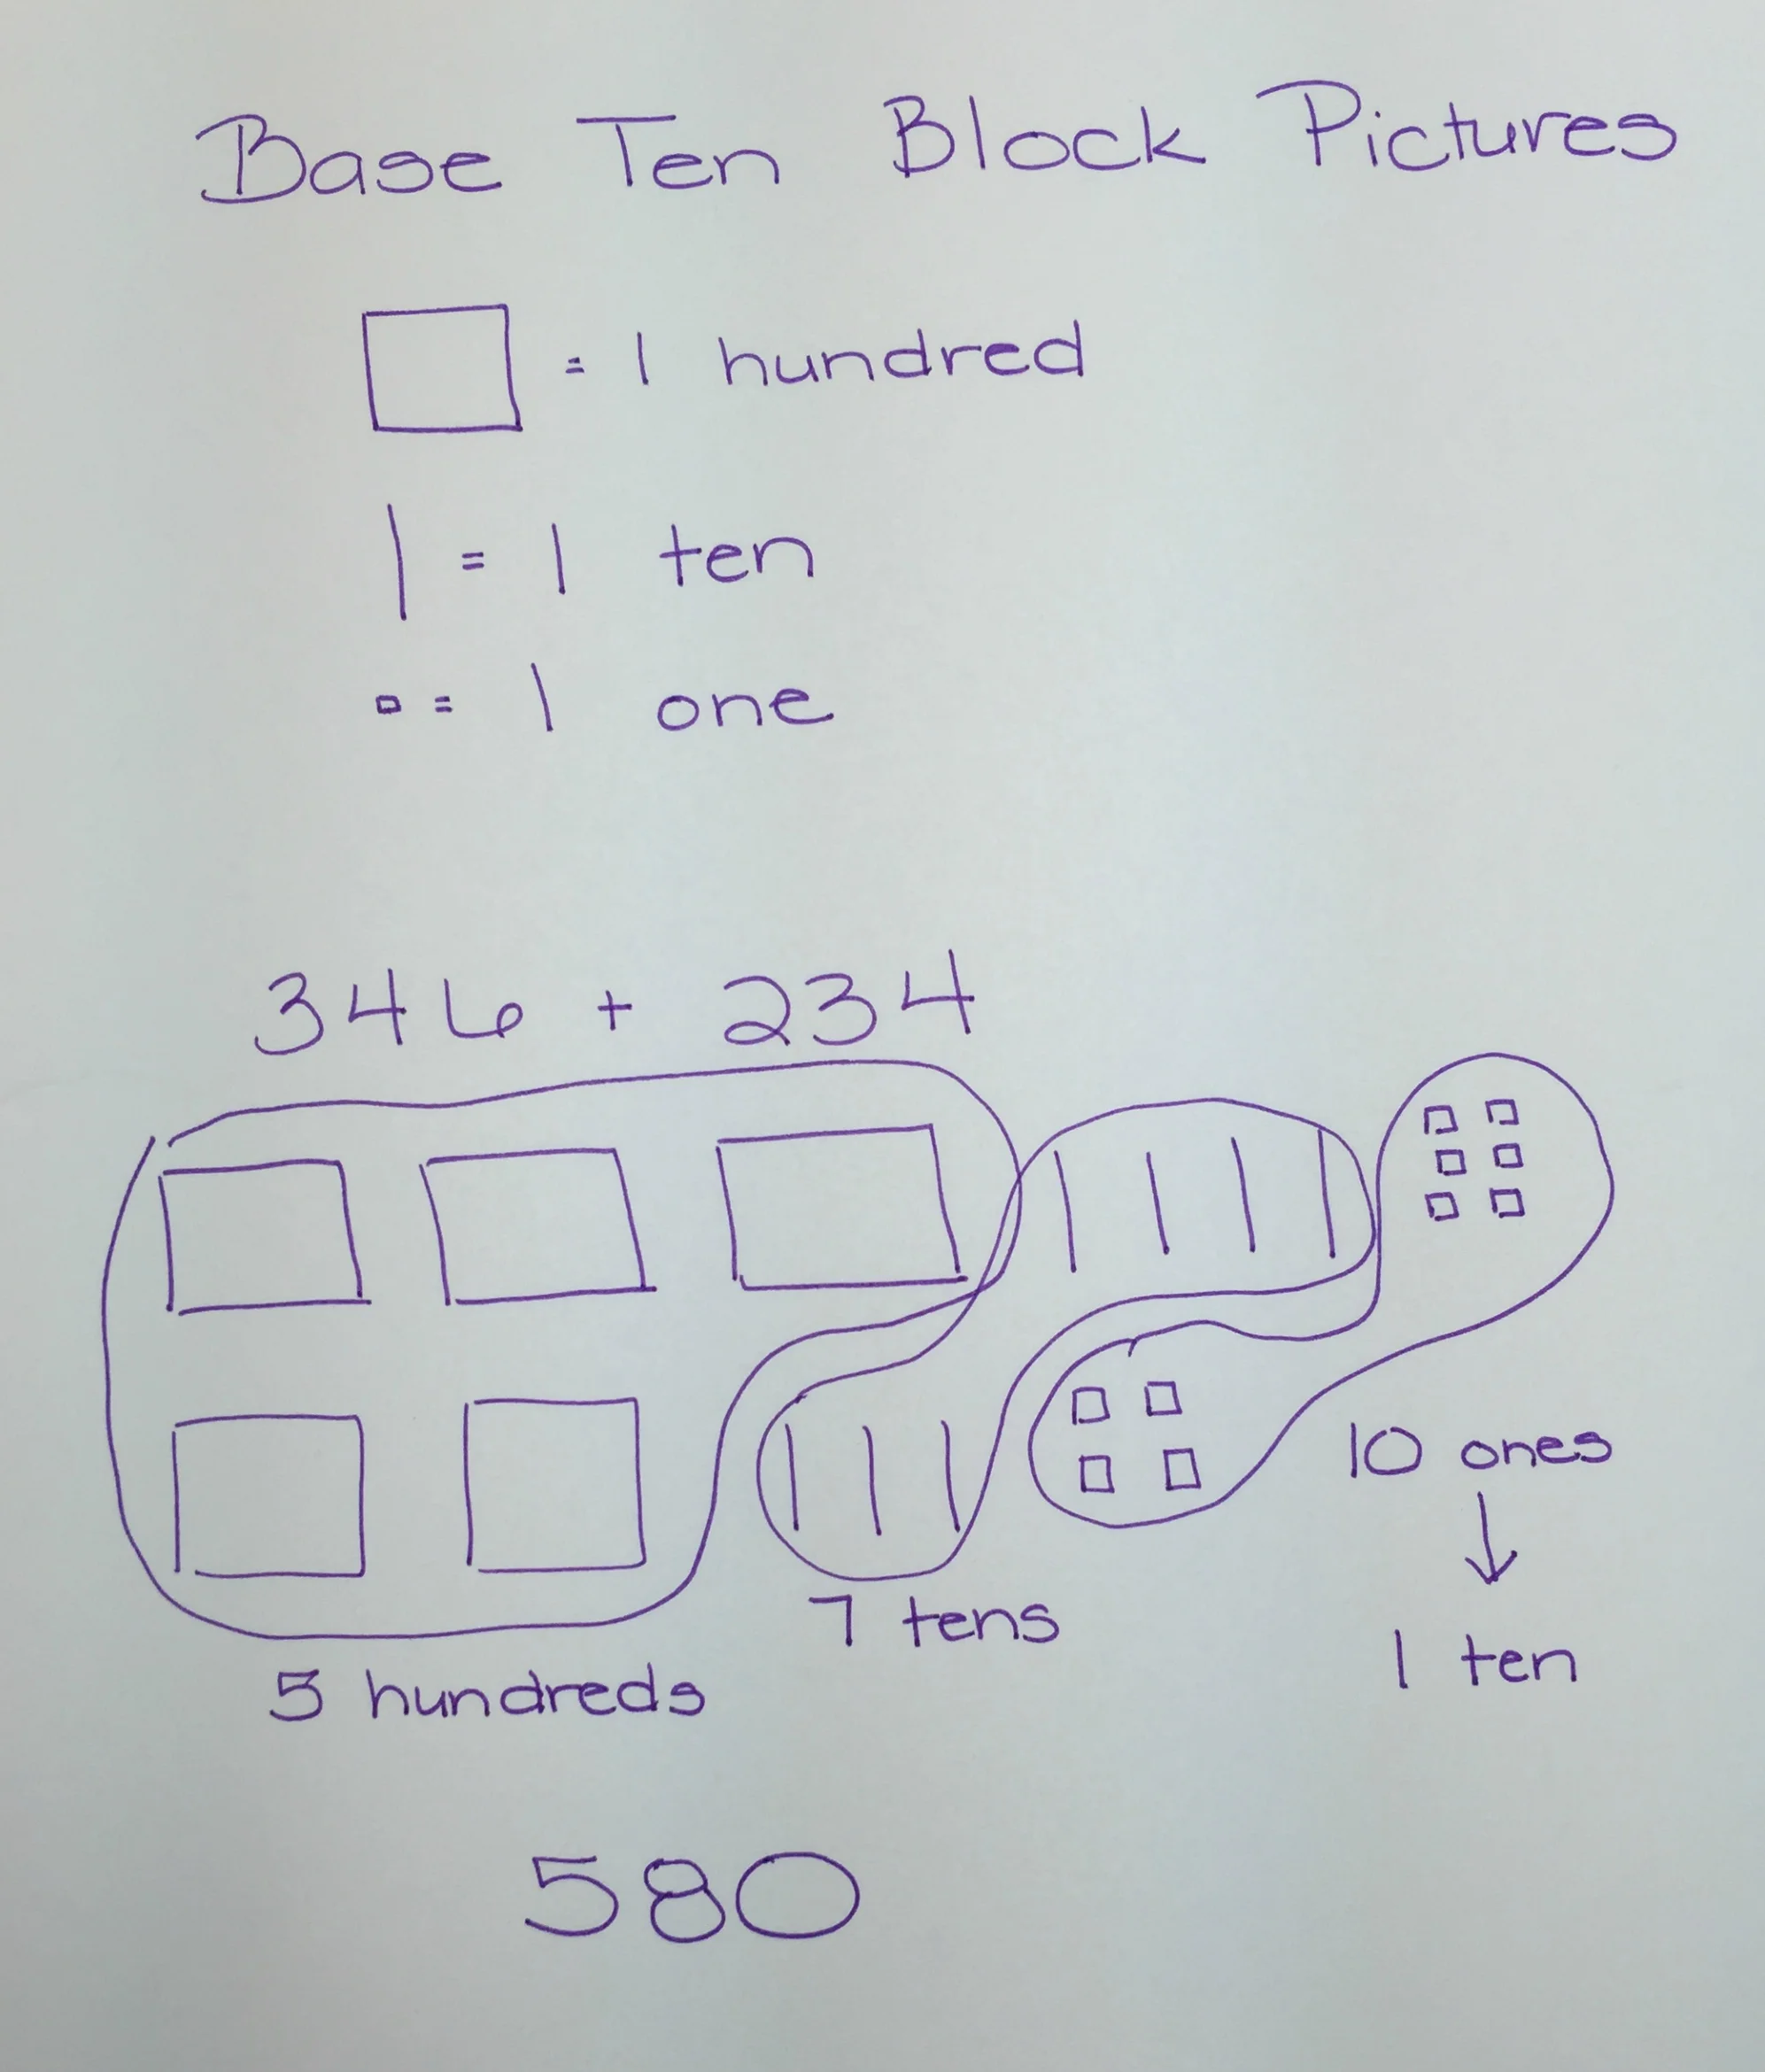 Base Ten Block Pictures
= 1 hundred
= 1 ten
= 1 one
346 + 234
10 ones
7 tens
1 ten
5 hundreds
580